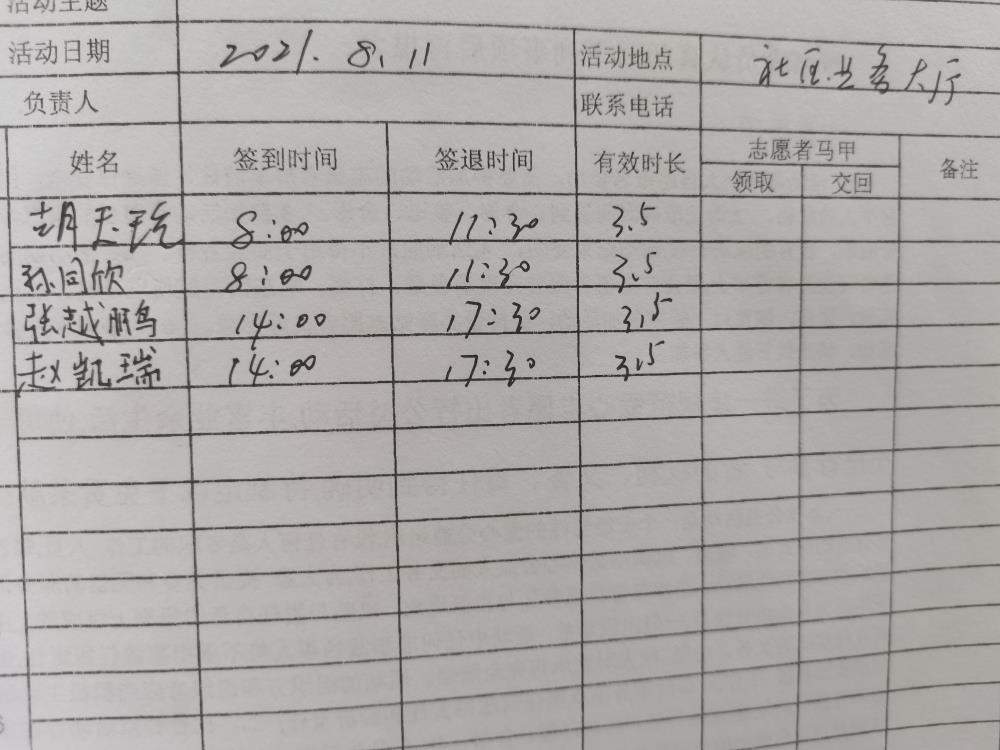 活动主题
活动日期 2021.8.11 活动地点 社区业务大厅
负责人 联系电话
姓名 签到时间 签退时间 有效时长 志愿者马甲 备注
领取 交回
胡天 8:00 11:30 3.5
孙同欣 8:00 11:30 3.5
张越鹏 14:00 17:30 3.5
赵凯瑞 14:00 17:30 3.5